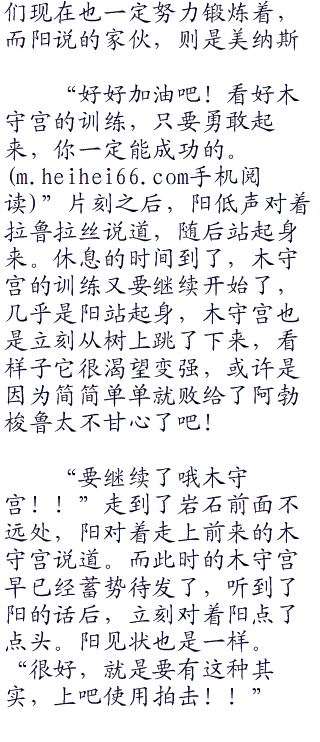 们现在也一定努力锻炼着，
而阳说的家伙，则是美纳斯
“好好加油吧！看好木
守宫的训练，只要勇敢起
来，你一定能成功的。
(m.heihei66.com手机阅
读)”片刻之后，阳低声对着
拉鲁拉丝说道，随后站起身
来。休息的时间到了，木守
宫的训练又要继续开始了，
几乎是阳站起身，木守宫也
是立刻从树上跳了下来，看
样子它很渴望变强，或许是
因为简简单单就败给了阿勃
梭鲁太不甘心了吧！
“要继续了哦木守
宫！！”走到了岩石前面不
远处，阳对着走上前来的木
守宫说道。而此时的木守宫
早已经蓄势待发了，听到了
阳的话后，立刻对着阳点了
点头。阳见状也是一样。
“很好，就是要有这种其
实，上吧使用拍击！！”